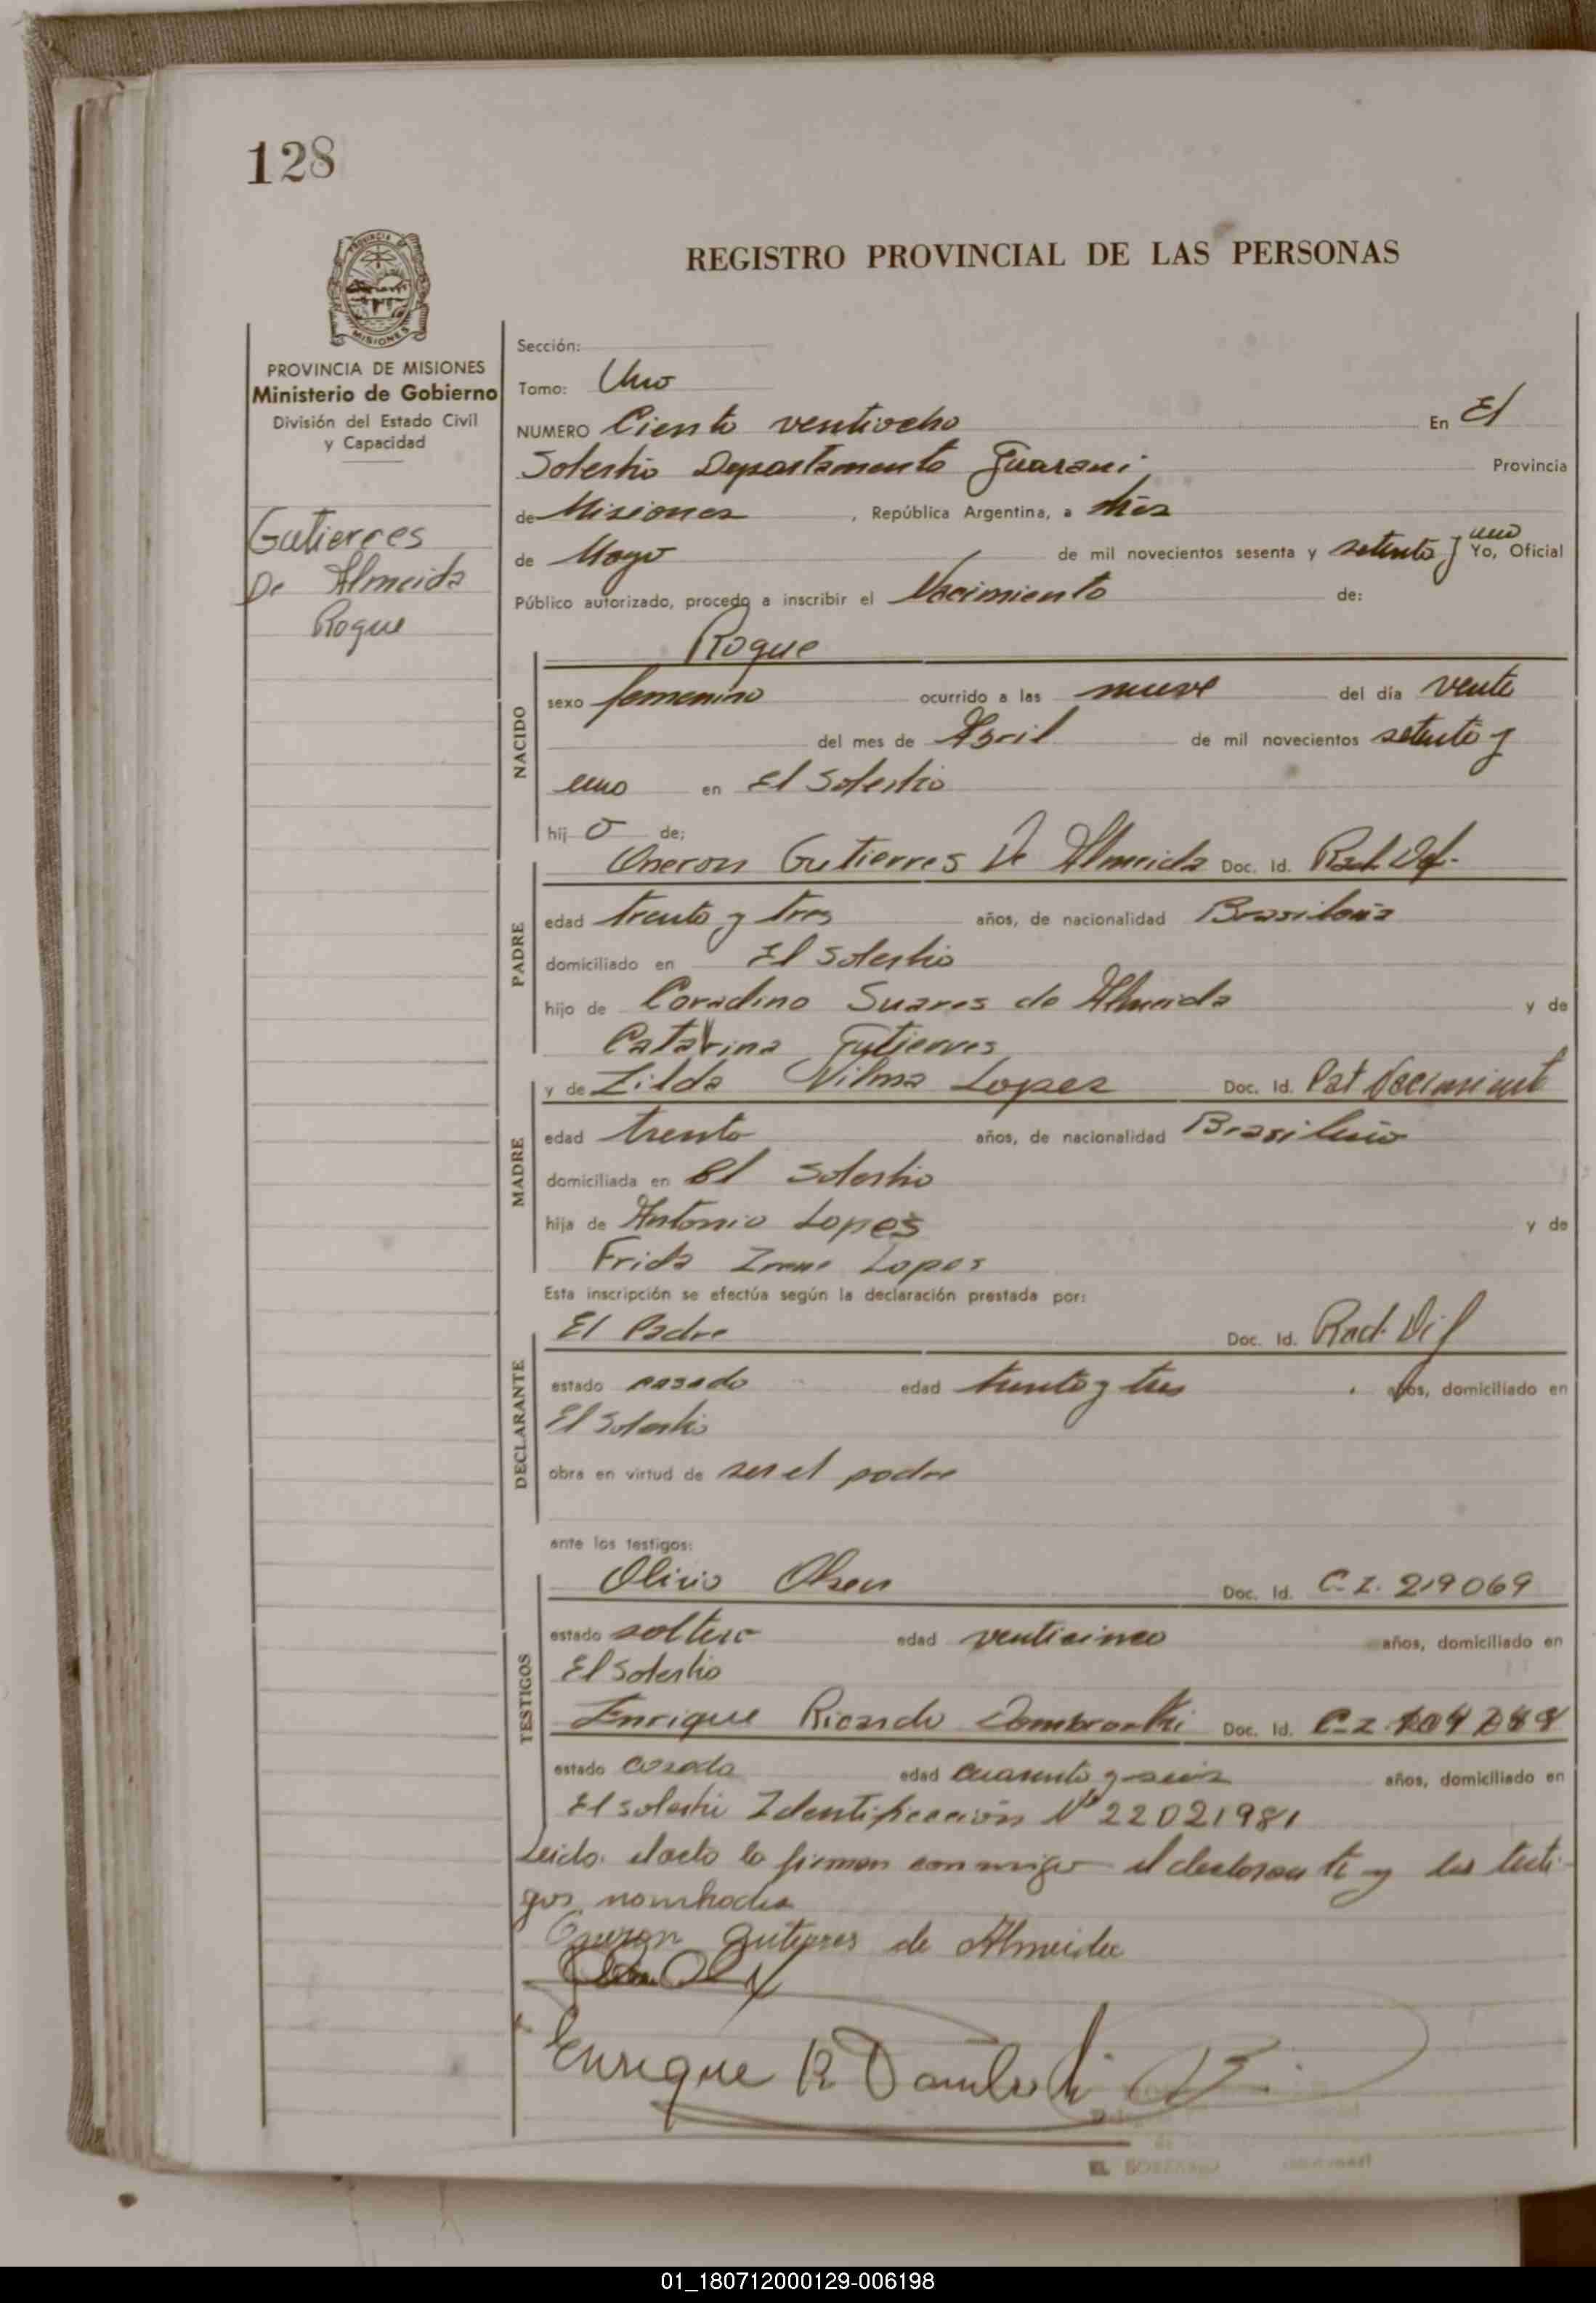 128
REGISTRO PROVINCIAL DE LAS PERSONAS
PROVINCIA DE MISIONES
Ministerio de Gobierno
División del Estado Civil
y Capacidad
Gutierres
De Almeida
Roque
Sección:
Tomo: Uno
NUMERO Ciento ventiocho En El
Solertio Departamento Guarani Provincia
de Misiones, República Argentina, a
de Mayo de mil novecientos sesenta y setenta y uno Yo, Oficial
Público autorizado, procedo a inscribir el Nacimiento de:
Roque
NACIDO
sexo femenino ocurrido a las nueve del día vente
del mes de Abril de mil novecientos setenta y
uno en El Solertio
hij o de:
PADRE
Oneron Gutierres De Almeida Doc. Id. Rad. Def.
edad trenta y tres años, de nacionalidad Brasileña
domiciliado en El Solertio
hijo de Coradino Suares de Almeida y de
Catarina Gutierres
MADRE
y de Zilda Vilma Lopez Doc. Id. Pat
edad trenta años, de nacionalidad Brasileña
domiciliada en El Solertio
hija de Antonio Lopes y de
Frida Lopes
Esta inscripción se efectúa según la declaración prestada por:
DECLARANTE
El Padre Doc. Id. Rad.
estado casado edad trenta y tres años, domiciliado en
El Solertio
obra en virtud de ser el padre
ante los testigos:
TESTIGOS
Olivio Olsen Doc. Id. C.I. 219069
estado soltero edad venticinco años, domiciliado en
El Solertio
Enrique Ricardo Doc. Id. C.I.
estado casado edad cuarenta y seis años, domiciliado en
El Solertio Identificación Nº 22021981
Leido el acto lo firman conmigo el declarante y los testi-
gos nombrados
Oneron Gutierres de Almeida
Enrique R
01_180712000129-006198